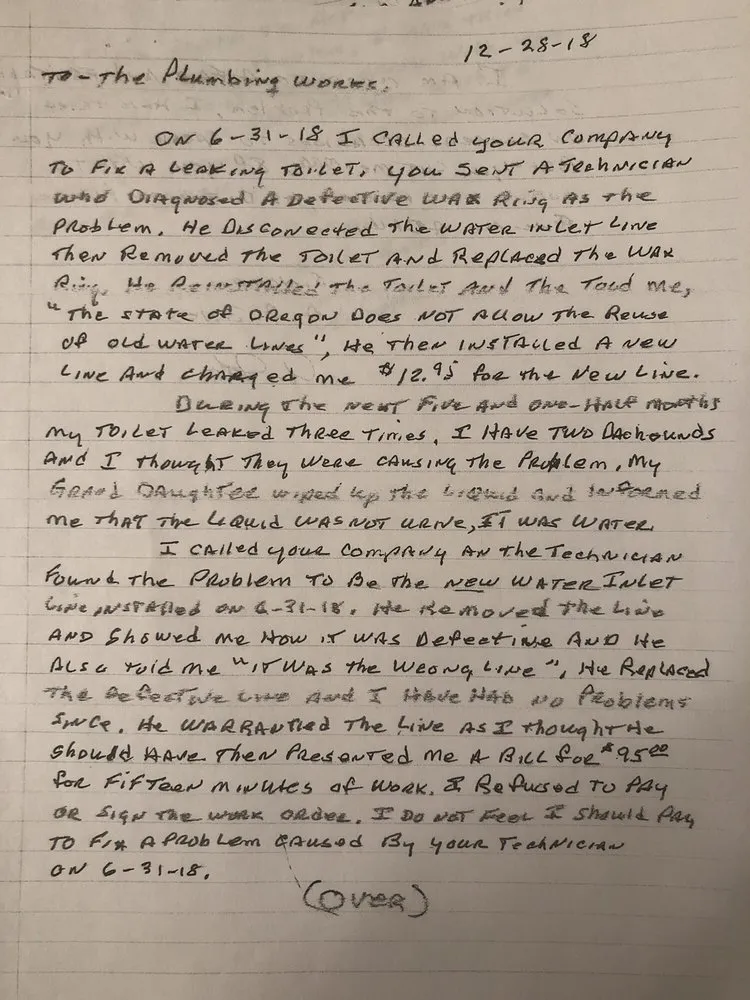 12-28-18
To- The Plumbing Works.
On 6-31-18 I called your company
to fix a leaking toilet, you sent a technician
who diagnosed a defective wax ring as the
problem. He disconected the water inlet line
then removed the toilet and replaced the wax
ring. He reinstalled the toilet and the toud me,
"The State of Oregon does not allow the reuse
of old water lines", He then installed a new
line and charged me $12.95 for the new line.
During the next five and one-half months
my toilet leaked three times. I have two dachounds
and I thought they were causing the problem. My
grand daughter wiped up the liquid and informed
me that the liquid was not urine, it was water.
I called your company an the technician
found the problem to be the new water inlet
line installed on 6-31-18. He removed the line
and showed me how it was defective and he
also told me "it was the wrong line", He replaced
the defective line and I have had no problems
since. He warrantied the line as I thought he
should have then presented me a bill for $95.00
for fifteen minutes of work. I refused to pay
or sign the work order. I do not feel I should pay
to fix a problem caused by your technician
on 6-31-18.
(Over)